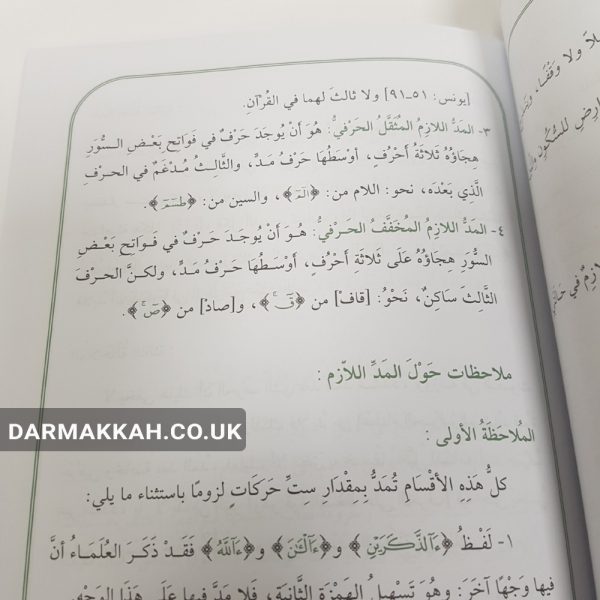 [يونس: ٥١ـ٩١] ولا ثالثَ لهما في القُرْآنِ.
٣- المَدُّ اللازِمُ المُثَقَّلُ الحَرْفيُّ: هُوَ أَنْ يُوجَدَ حَرْفٌ في فَوَاتِحِ بَعْضِ السُّوَرِ
هِجَاؤُهُ ثَلاثَةُ أَحْرُفٍ، أَوْسَطُهَا حَرْفُ مَدٍّ، والثَّالِثُ مُدْغَمٌ في الحرْفِ
الَّذِي بَعْدَه، نحو: اللام من: ﴿الٓمٓ﴾، والسين من: ﴿طسٓمٓ﴾.
٤- المَدُّ اللازِمُ المُخَفَّفُ الحَرْفيُّ: هُوَ أَنْ يُوجَدَ حَرْفٌ في فَوَاتِحِ بَعْضِ
السُّوَرِ هِجَاؤُهُ عَلَى ثَلاثَةِ أَحْرُفٍ، أَوْسَطُهَا حَرْفُ مَدٍّ، ولكنَّ الحَرْفَ
الثَّالِثَ سَاكِنٌ، نَحْوُ: [قافْ] من ﴿قٓۚ﴾، و[صادْ] من ﴿صٓۚ﴾.
ملاحظات حَوْلَ المَدِّ اللاَّزِمِ:
المُلاحَظَةُ الأولى:
كلُّ هَذِهِ الأقْسَامِ تُمَدُّ بِمِقْدَارِ سِتِّ حَرَكَاتٍ لزومًا باستثناء ما يلي:
١- لَفْظُ ﴿ءَآلذَّكَرَيْنِ﴾ و﴿ءَآلْـَٰٔنَ﴾ و﴿ءَآللَّهُ﴾ فَقَدْ ذَكَرَ العُلَمَاءُ أنَّ
فيها وَجْهًا آخَرَ: وهُوَ تَسْهِيلُ الهَمْزَةِ الثَّانِيَةِ، فَلا مَدَّ فيها عَلَى هَذَا الوَجْهِ.
DARMAKKAH.CO.UK